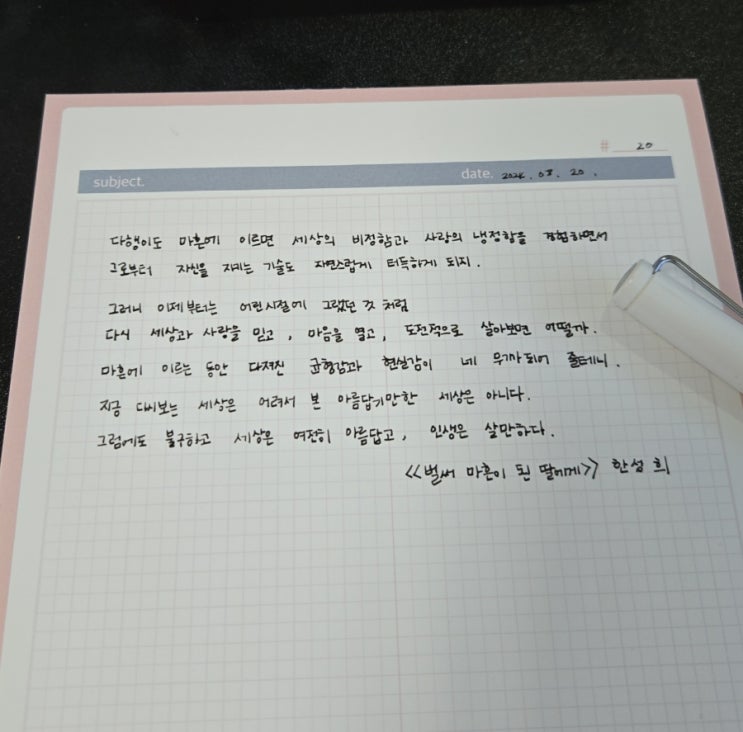 # 20
subject. date. 2024. 08. 20.
다행이도 마흔에 이르면 세상의 비정함과 사랑의 냉정함을 경험하면서
그로부터 자신을 지키는 기술도 자연스럽게 터득하게 되지.
그러니 이제부터는 어린시절에 그랬던 것 처럼
다시 세상과 사랑을 믿고, 마음을 열고, 도전적으로 살아보면 어떨까.
마흔에 이르는 동안 다져진 균형감과 현실감이 네 무기가 되어 줄테니.
지금 다시보는 세상은 어려서 본 아름답기만한 세상은 아니다.
그럼에도 불구하고 세상은 여전히 아름답고, 인생은 살만하다.
<<벌써 마흔이 된 딸에게>> 한성희